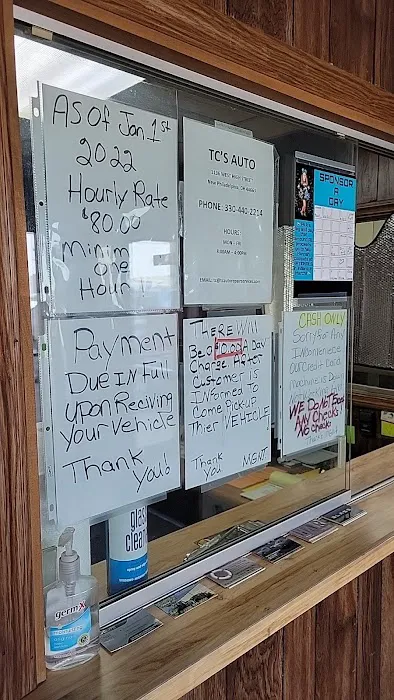 AS OF Jan 1st
2022
Hourly Rate
$80.00
Minimum
one
Hour!!
TC'S AUTO
New Philadelphia, OH 44663
PHONE: 330-440-2214
HOURS:
MON - FRI
8:00AM - 4:00PM
SPONSOR
A
DAY
Payment
Due IN Full
Upon Reciving
Your Vehicle
Thank
You!
THERE Will
Be a $10.00 A Day
Charge After
Customer is
INformed To
Come Pick up
Thier VEHICLE!
Thank
You
MGNT.
CASH ONLY
Sorry for Any
Inconvenience
Our Credit Card
machine is Down
WE DO NOT
Any Checks!
NO Checks
Thank You!
glass
cleaner
germX